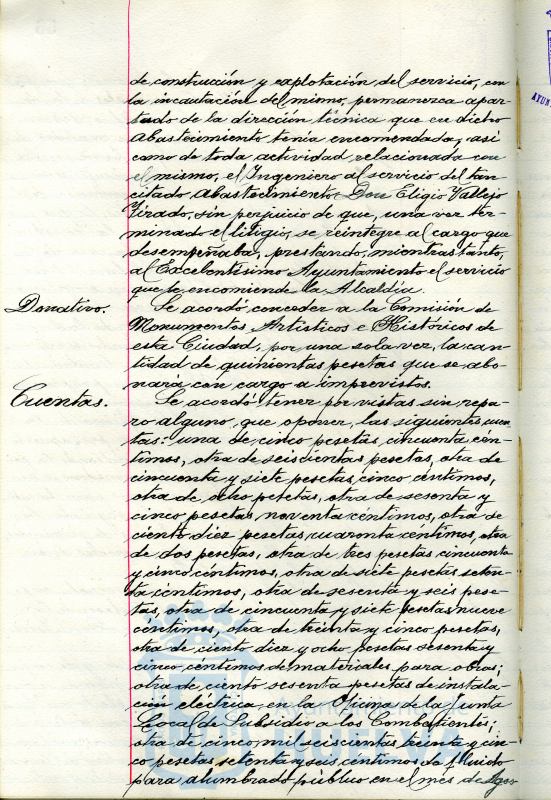 de construcción y explotación del servicio, en
la incautación del mismo, permanezca apar-
tado de la dirección técnica que en dicho
Abastecimiento tenía encomendada, así
como de toda actividad relacionada con
el mismo, el Ingeniero al servicio del tan
citado Abastecimiento Don Eligio Vallejo
Tirado, sin perjuicio de que, una vez ter-
minado el litigio, se reintegre al cargo que
desempeñaba, prestando, mientras tanto,
al Excelentísimo Ayuntamiento el servicio
que le encomiende la Alcaldía.
Donativo. Se acordó conceder a la Comisión de
Monumentos Artísticos e Históricos de
esta Ciudad, por una sola vez, la can-
tidad de quinientas pesetas que se abo-
nará con cargo a imprevistos.
Cuentas. Se acordó tener por vistas sin repa-
ro alguno que oponer, las siguientes cuen
tas: una de cinco pesetas, cincuenta cén-
timos, otra de seiscientas pesetas, otra de
cincuenta y siete pesetas, cinco céntimos,
otra de ocho pesetas, otra de sesenta y
cinco pesetas, noventa céntimos, otra de
ciento diez pesetas, cuarenta céntimos, otra
de dos pesetas, otra de tres pesetas cincuenta
y cinco céntimos, otra de siete pesetas seten-
ta céntimos, otra de sesenta y seis pese-
tas, otra de cincuenta y siete pesetas nueve
céntimos, otra de treinta y cinco pesetas,
otra de ciento diez y ocho pesetas sesenta y
cinco céntimos de materiales para obras;
otra de ciento sesenta pesetas de instala-
ción eléctrica en la Oficina de la Junta
Local de Subsidio a los Combatientes;
otra de cinco mil seiscientas treinta y cin-
co pesetas setenta y seis céntimos de fluido
para alumbrado público en el mes de Agos